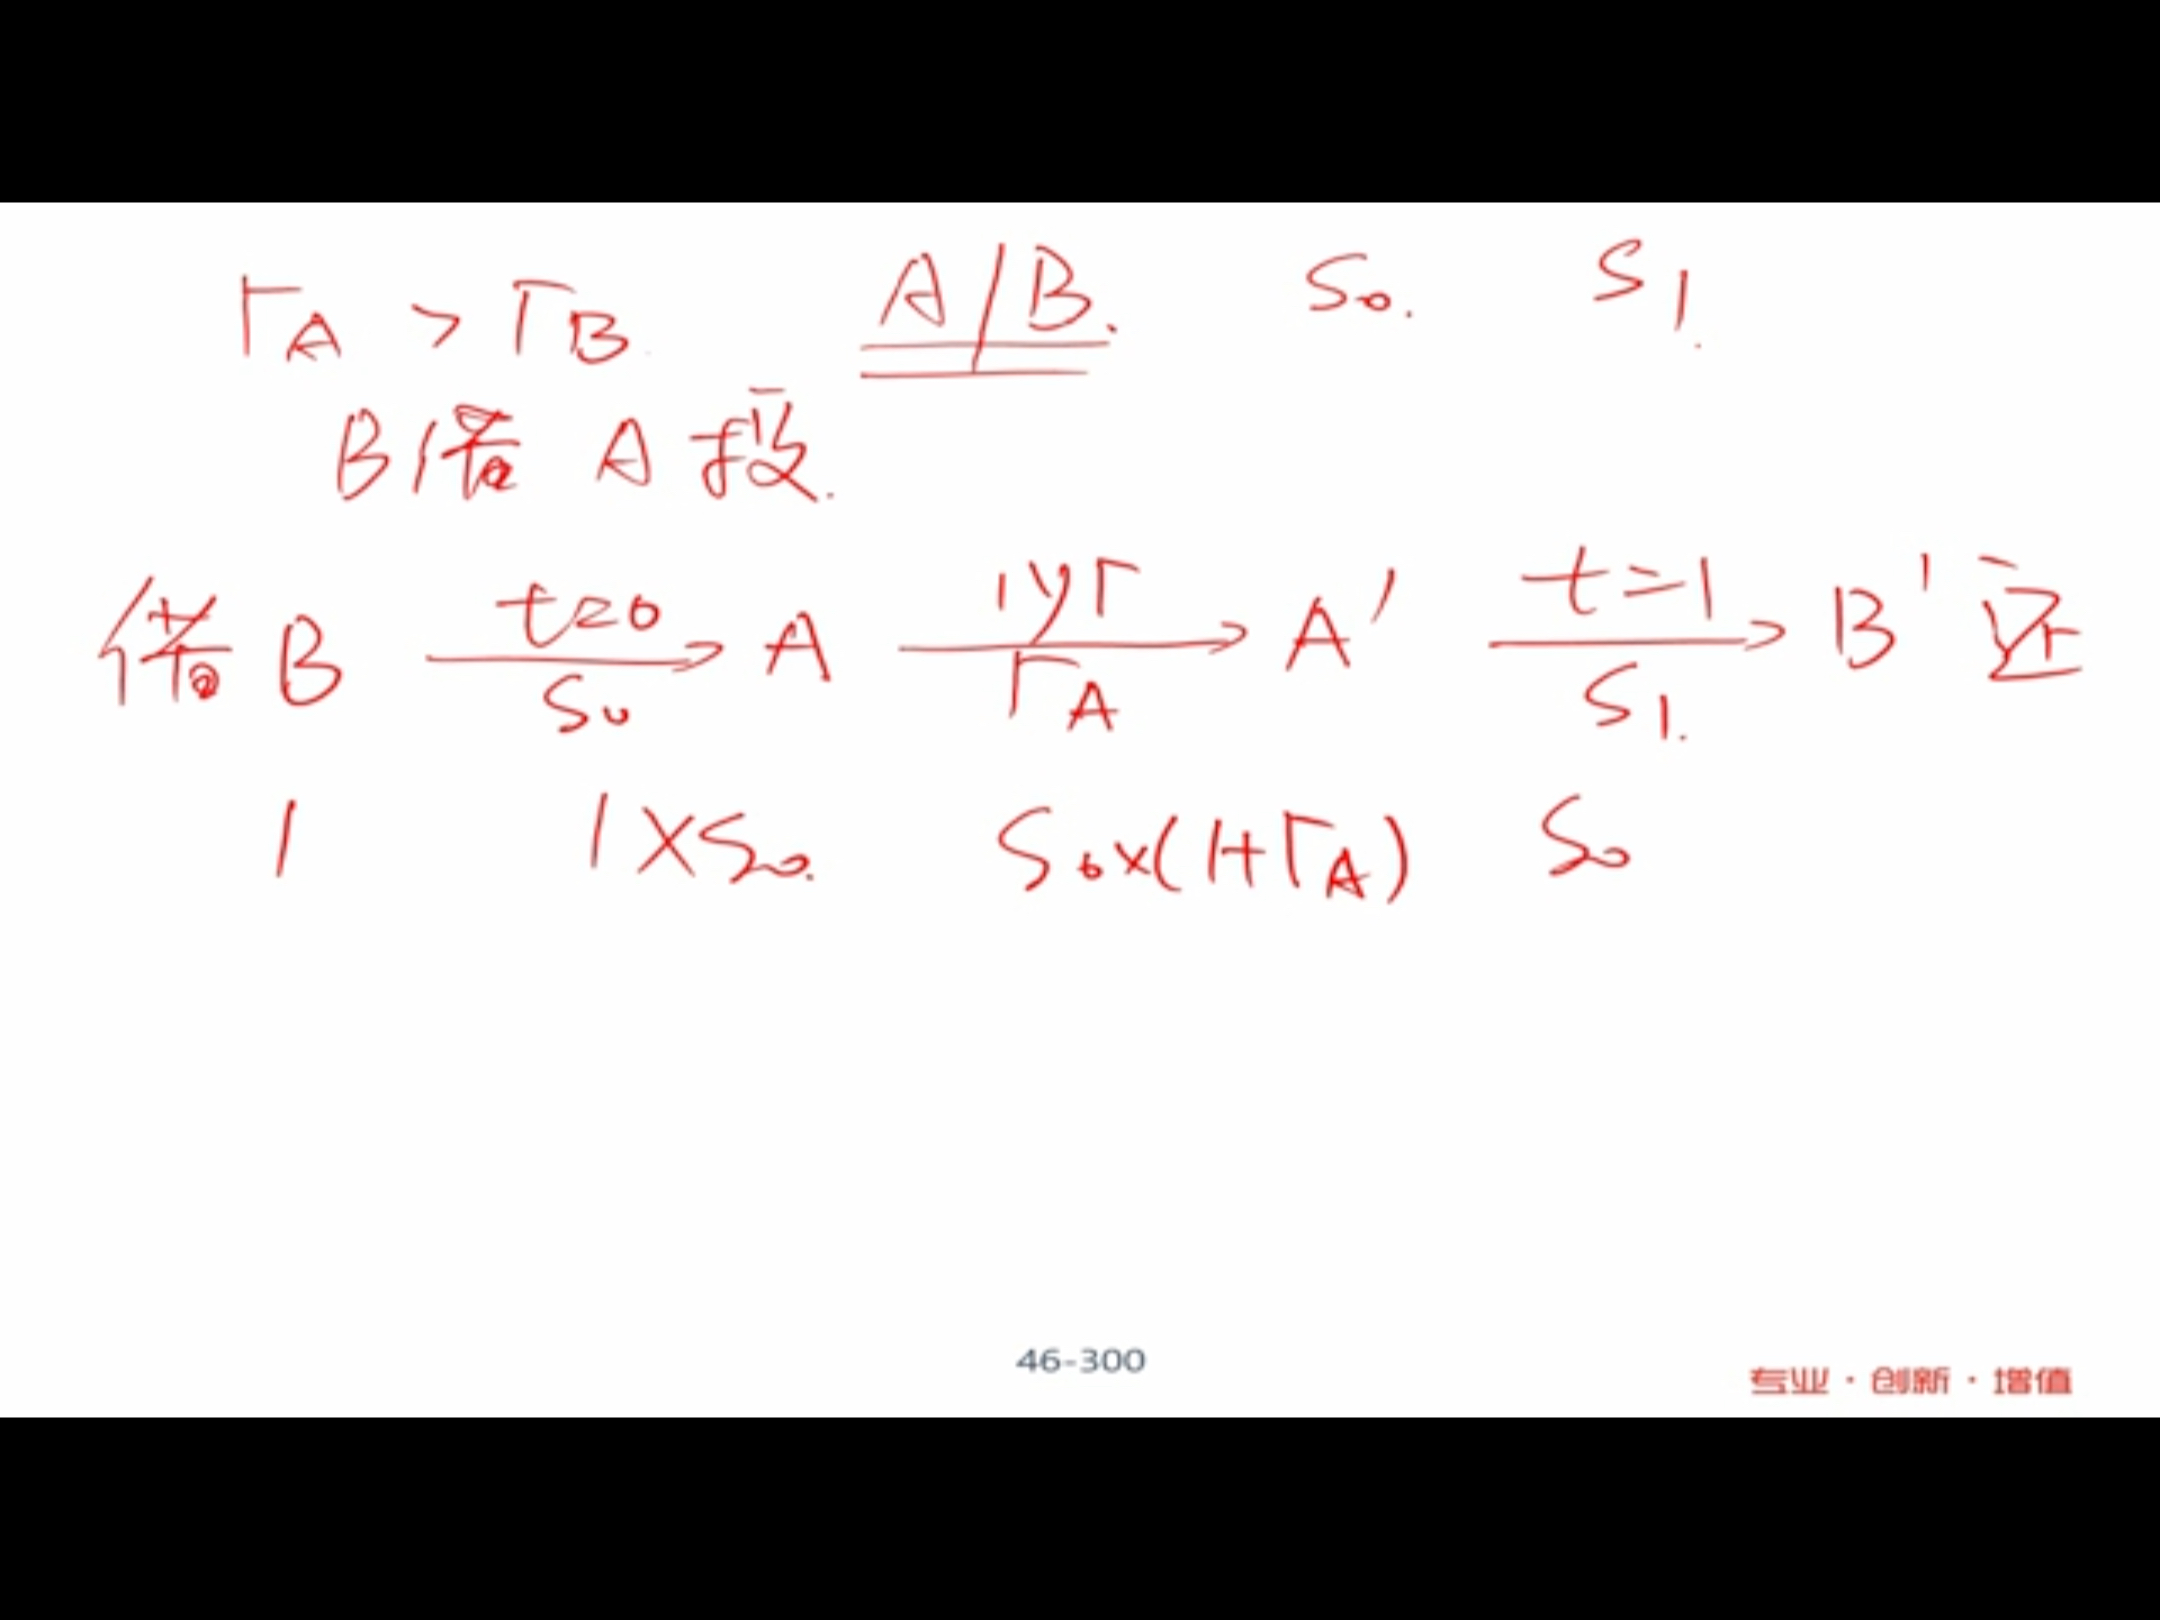 rA > rB A/B. S0. S1.
B借 A投.
借B t=0 S0 → A 1yr rA → A' t=1 S1. → B' 还
1 1×S0. S0×(1+rA) S0
46-300
专业·创新·增值